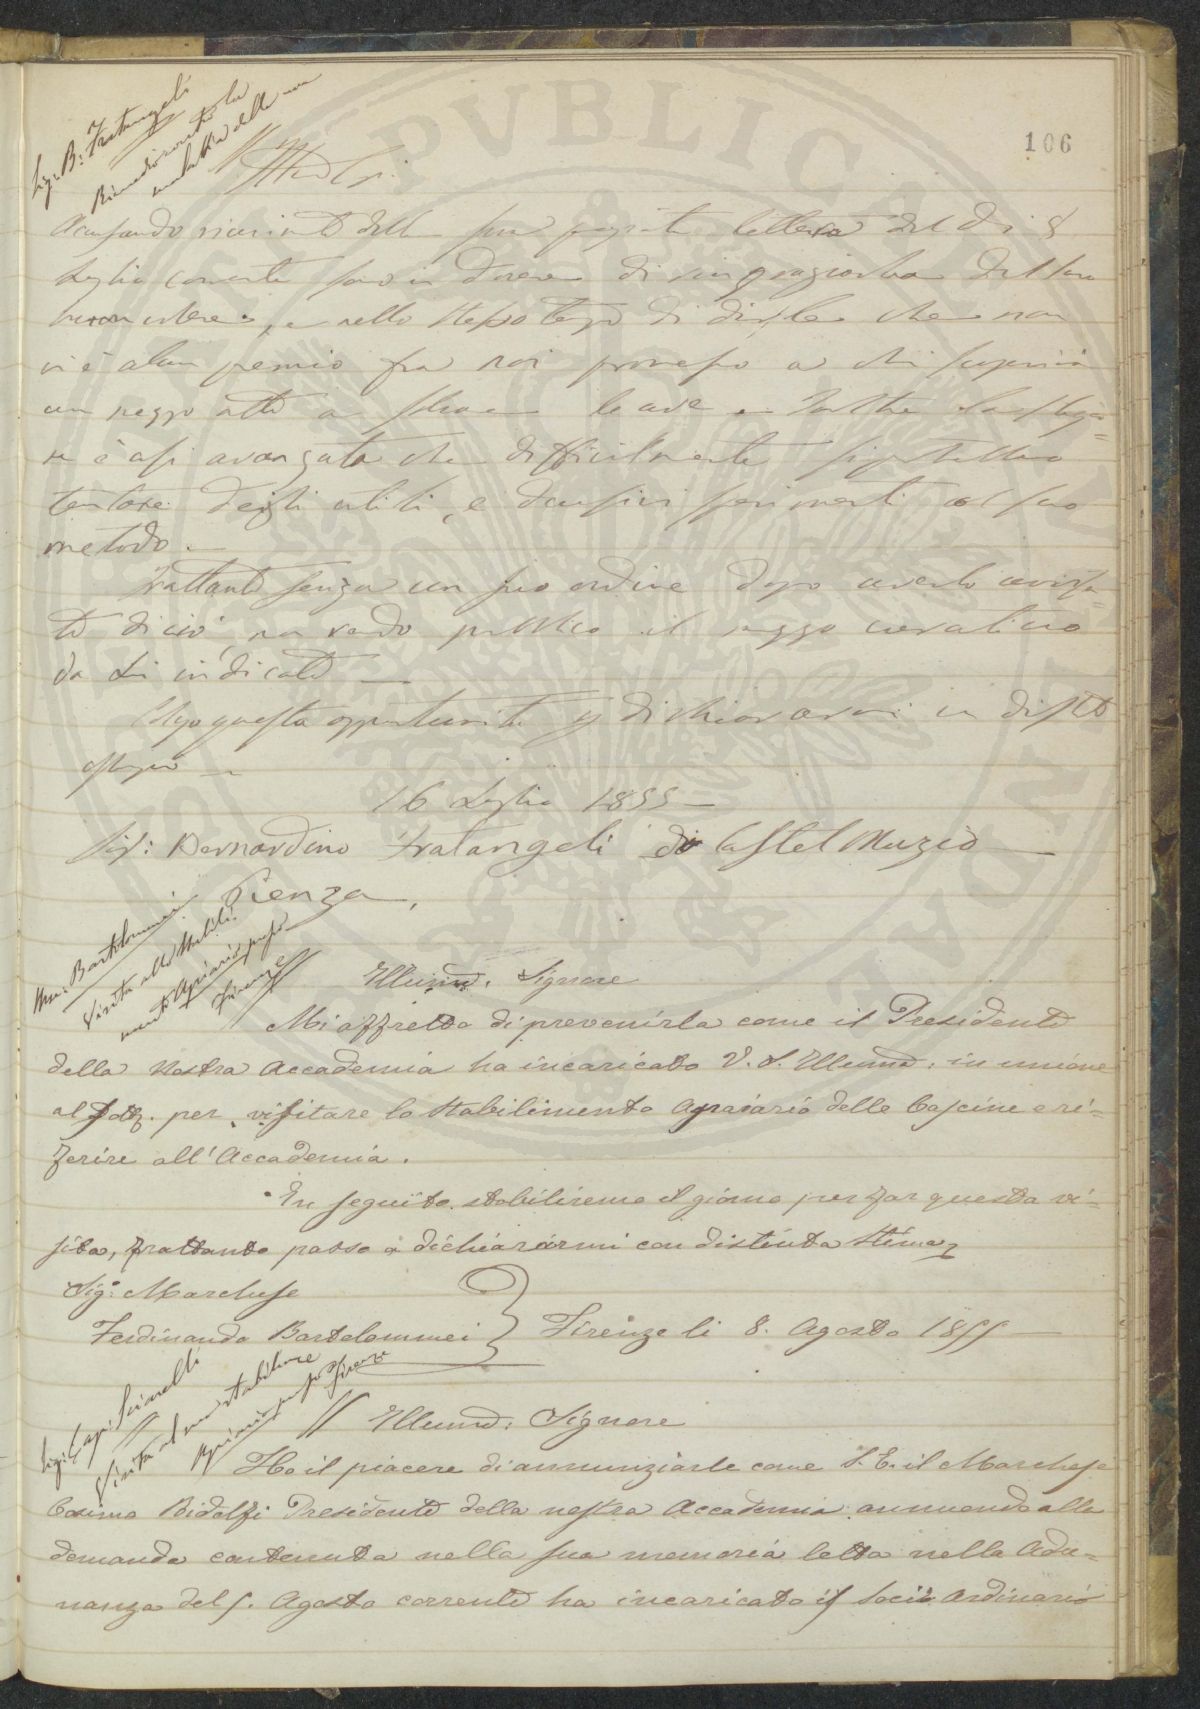 106
Sig: B: Fratangeli
Rimedio contro la
malattia delle uve
Accusando ricevimento della sua pregiata lettera del dì 8
Luglio corrente sono in dovere di ringraziarla del suo
buon volere, e nello stesso tempo di dirle che non
vi è alcun premio fra noi promesso a chi scoprirà
un mezzo atto a le uve e la stagio=
ne è assi avanzata che difficilmente si potrebbero
tentare degli utili, e decisivi sperimenti col suo
metodo.
Frattanto senza un suo ordine dopo averlo avvisa=
to di ciò, non rendo pubblico il mezzo curativo
da Lei indicato
Colgo questa opportunità p dichiararmi con distto
ossequio
16 Luglio 1855
Sig: Bernardino Fratangeli di Castel Muzio
Pienza,
Mse: Bartolommei
Visita allo Stabili=
mento Apiario presso
Firenze
Illumo. Signore
Mi affretto di prevenirla come il Presidente
della Nostra Accademia ha incaricato V. S. Illuma: in unione
al Dott. per visitare lo Stabilimento Apiario delle Cascine e ri=
ferire all'Accademia.
In seguito stabiliremo il giorno per far questa vi=
sita, frattanto passo a dichiararmi con distinta stima
Sig: Marchese
Ferdinando Bartolommei } Firenze li 8. Agosto 1855
Sig: Capi: Sciarelli
Visita al suo stabilime
Apiario presso Firenze
Illumo: Signore
Ho il piacere di annunziarle come S. E. il Marchese
Cosimo Ridolfi Presidente della nostra Accademia annuendo alla
domanda contenuta nella sua memoria letta nella Adu=
nanza del 5. Agosto corrente ha incaricato il Socio Ordinario